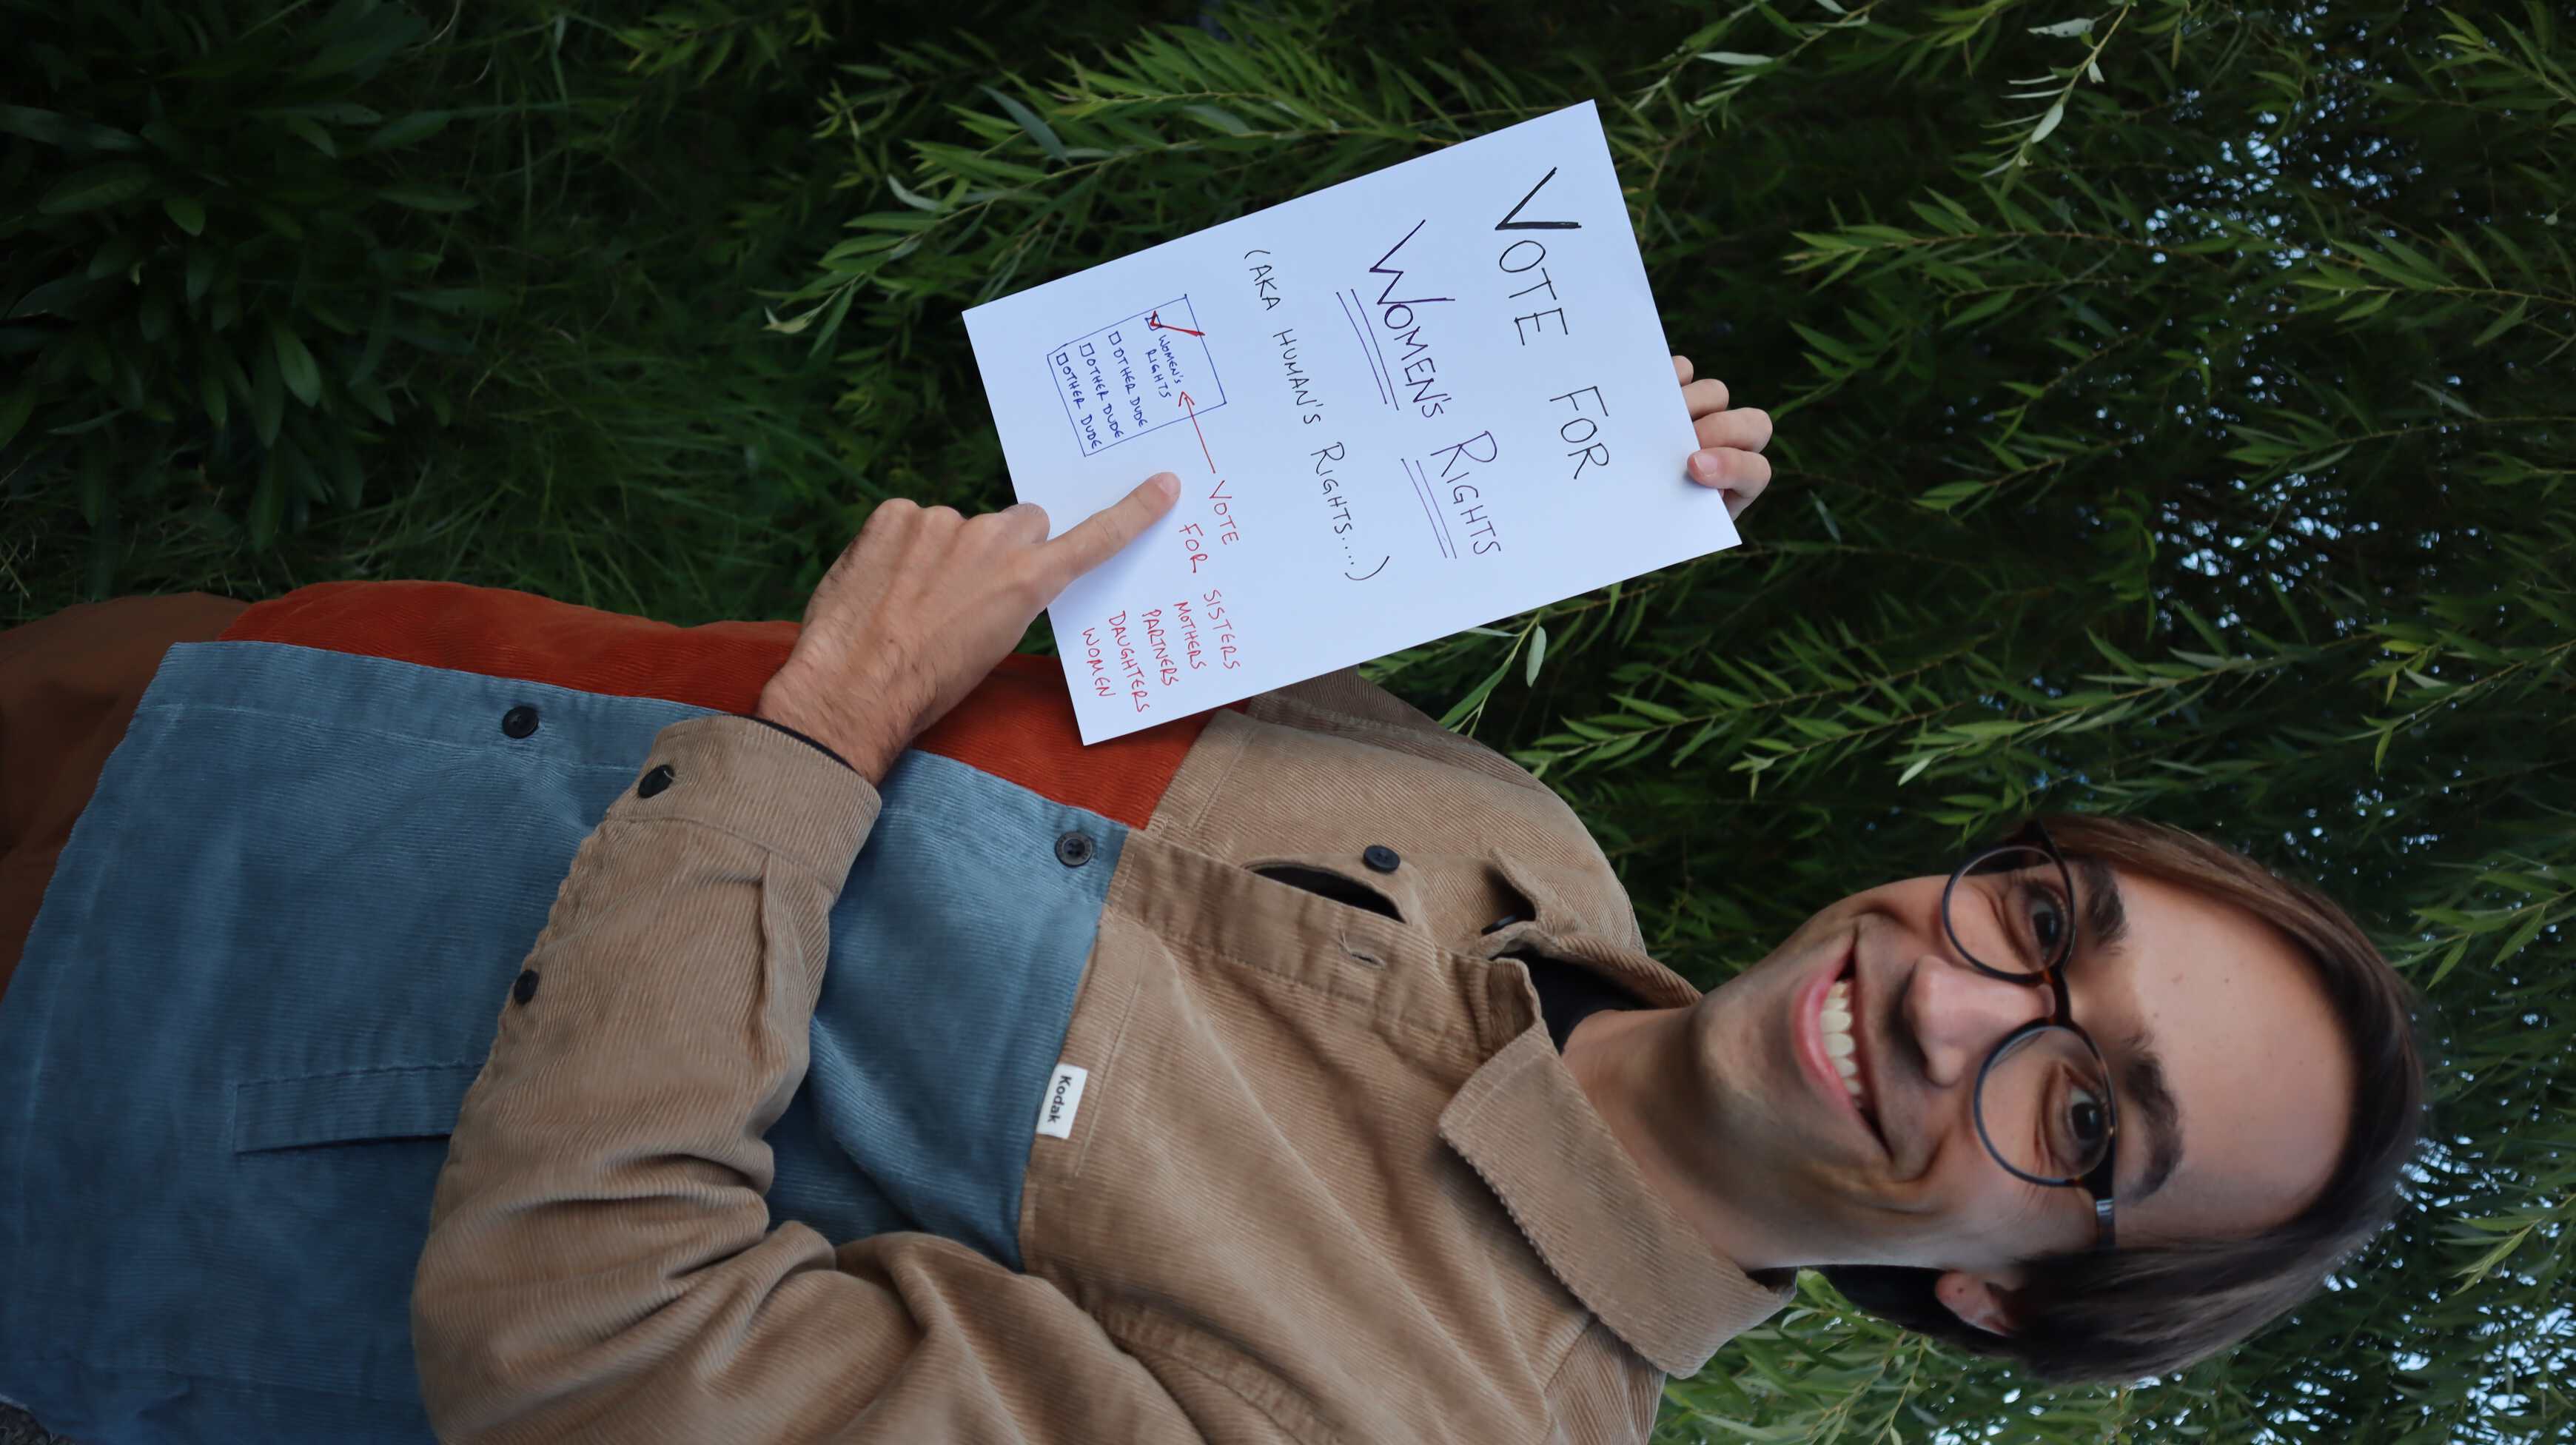 VOTE FOR
WOMEN'S RIGHTS
(AKA HUMAN'S RIGHTS....)
WOMEN'S
RIGHTS
OTHER DUDE
OTHER DUDE
OTHER DUDE
VOTE
FOR SISTERS
MOTHERS
PARTNERS
DAUGHTERS
WOMEN
Kodak